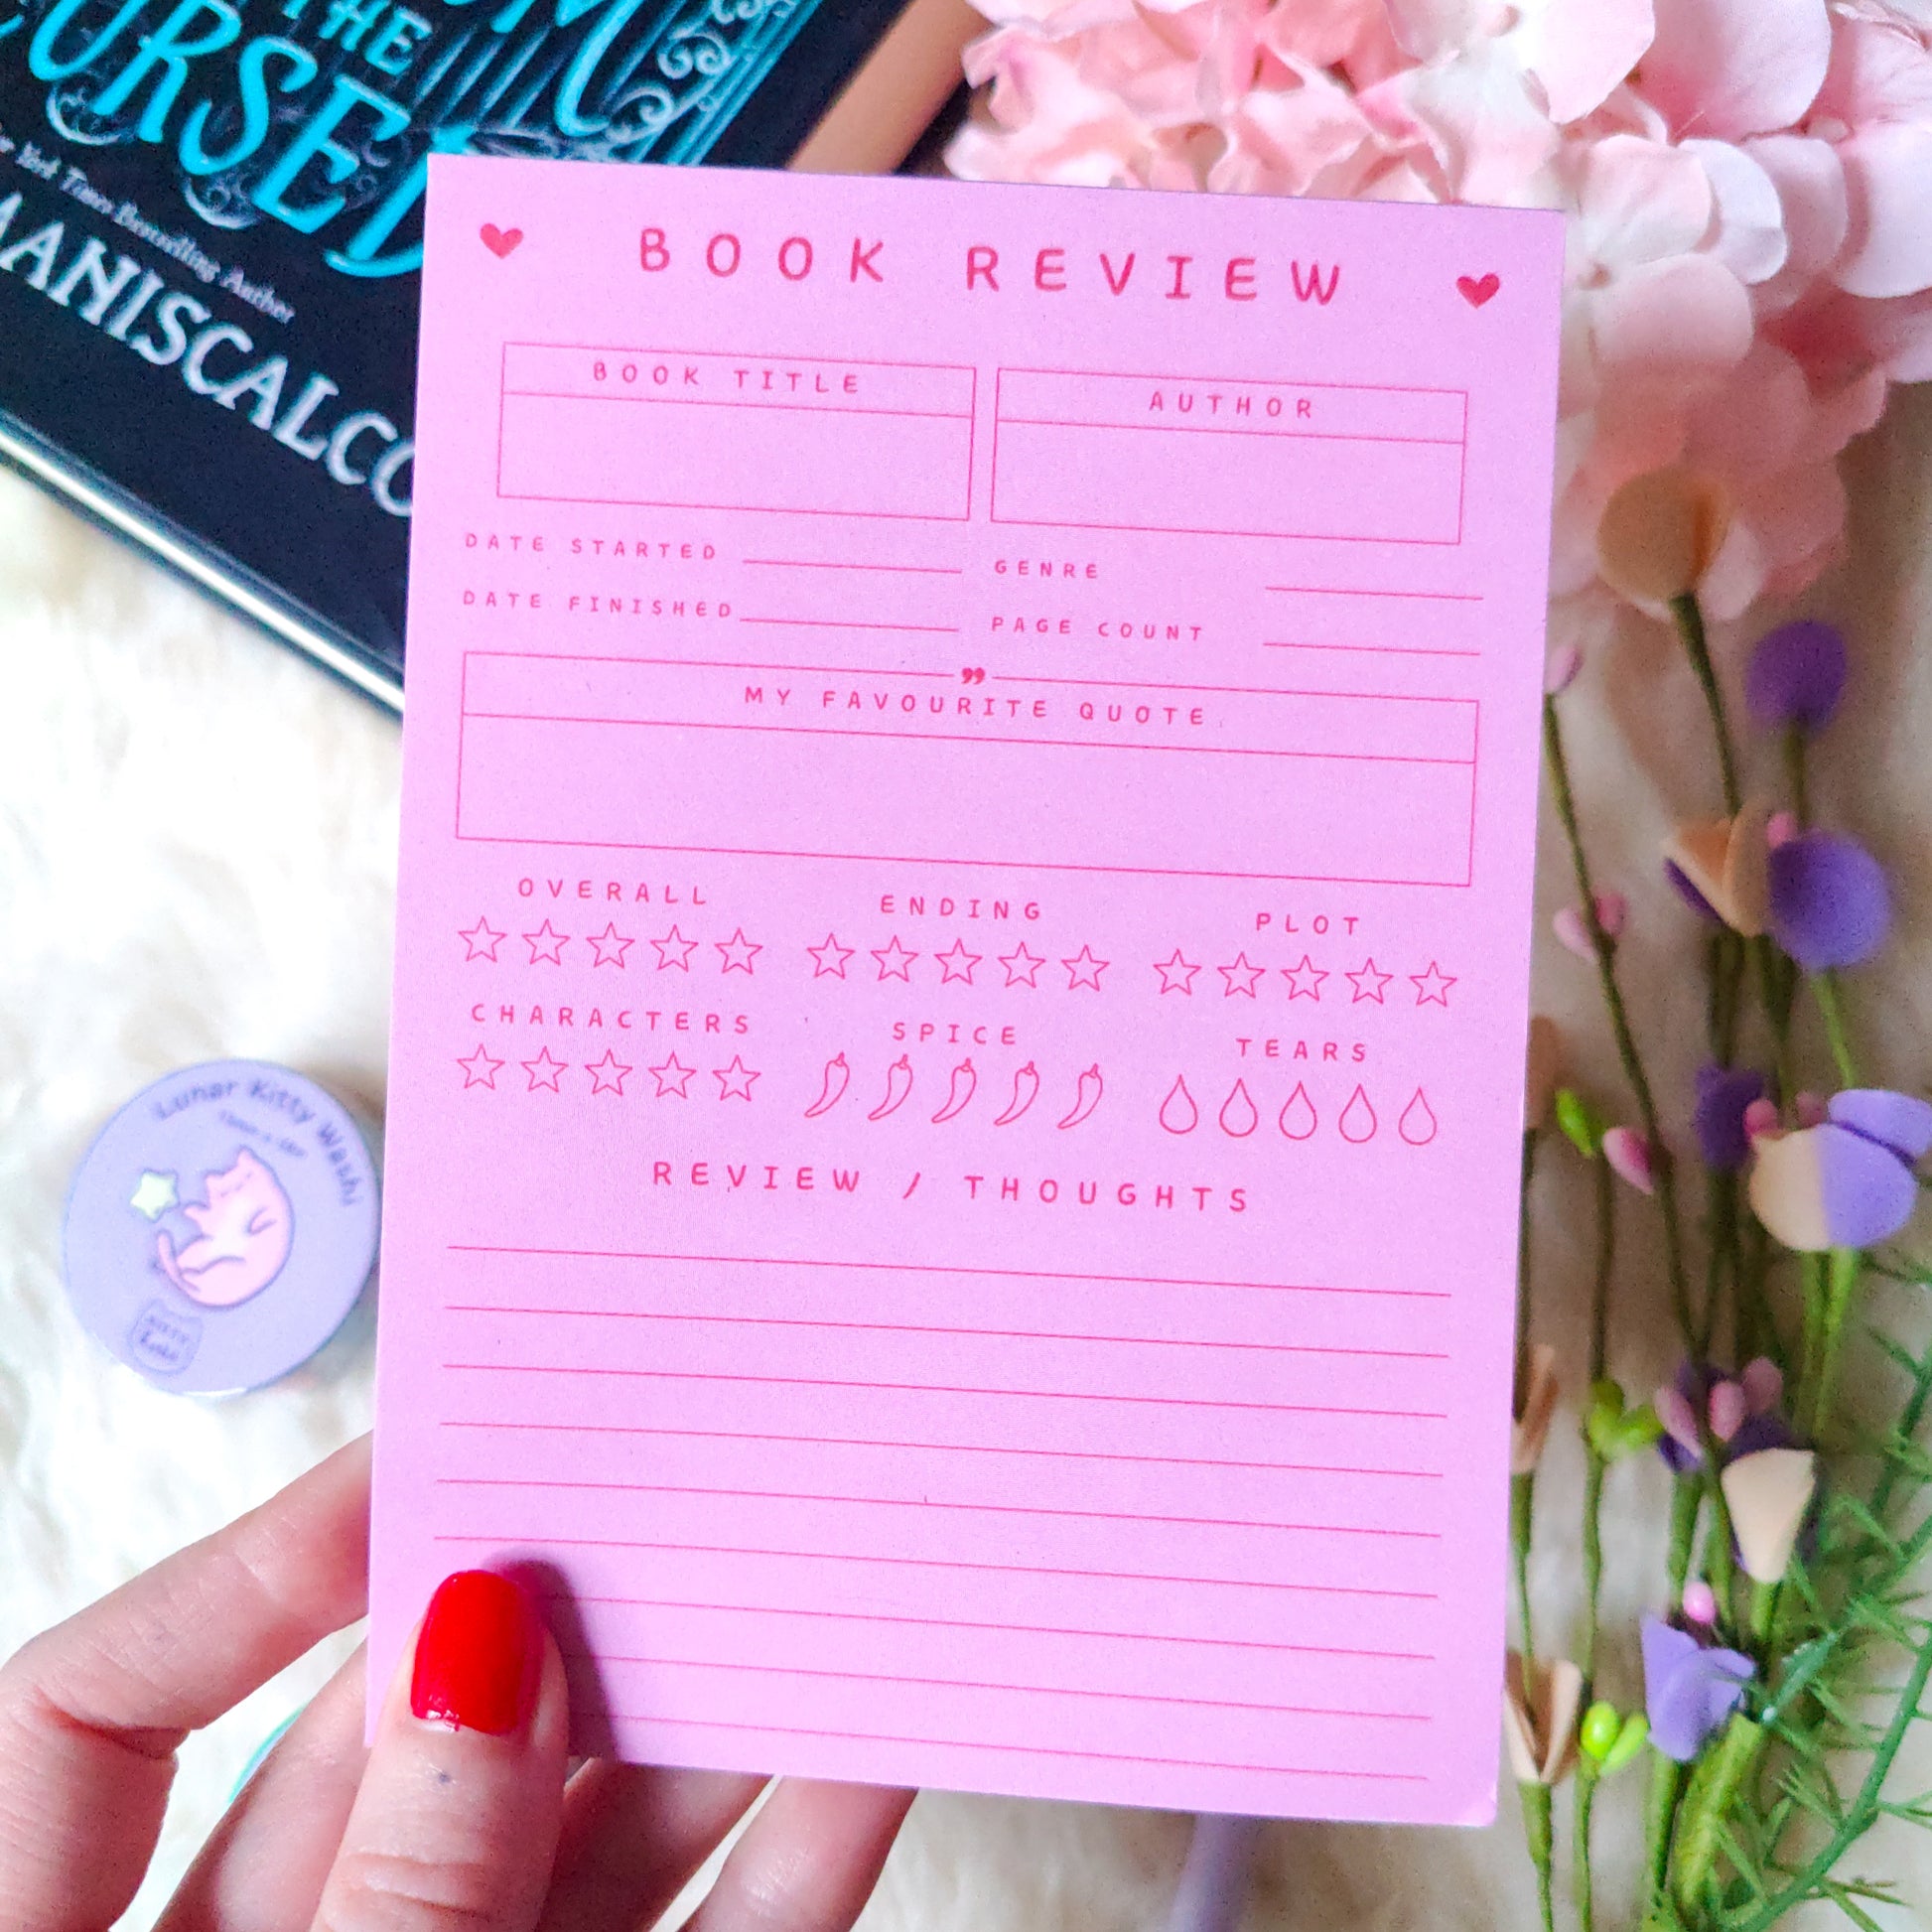 THE
CURSED
New York Times Bestselling Author
MANISCALCO
BOOK REVIEW
BOOK TITLE
AUTHOR
DATE STARTED
GENRE
DATE FINISHED
PAGE COUNT
❞
MY FAVOURITE QUOTE
OVERALL
ENDING
PLOT
CHARACTERS
SPICE
TEARS
REVIEW / THOUGHTS
Lunar Kitty Washi